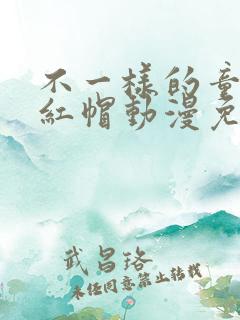 不一樣的童
紅帽動漫免
武昌珞
未经同意禁止转载